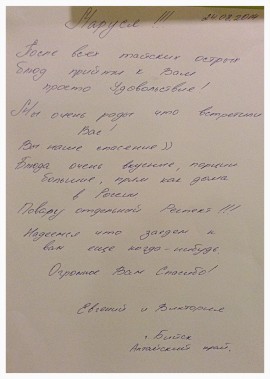 Маруся !!!
После всех тайских острых
блюд прийти к Вам
просто Удовольствие!
Мы очень рады что встретили
Вас!
Вы наше спасение))
Блюда очень вкусные, порции
большие, прям как дома
в России
Повару отдельный Респект!!!
Надеемся что заедем к
вам еще когда-нибудь
Огромное Вам Спасибо!
Евгений и Виктория
г. Бийск
Алтайский край.